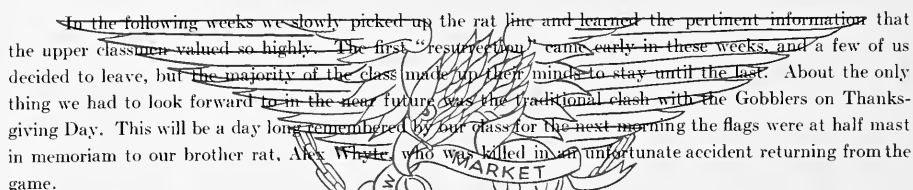 In the following weeks we slowly picked up the rat line and learned the pertinent information that
the upper classmen valued so highly. The first "resurrection" came early in these weeks, and a few of us
decided to leave, but the majority of the class made up their minds to stay until the last. About the only
thing we had to look forward to in the near future was the traditional clash with the Gobblers on Thanks-
giving Day. This will be a day long remembered by our class for the next morning the flags were at half mast
in memoriam to our brother rat, Alex Whyte, who was killed in an unfortunate accident returning from the
MARKET
game.